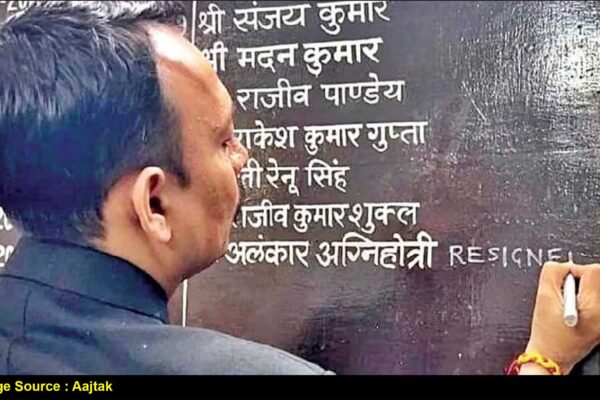 श्री संजय कुमार
श्री मदन कुमार
राजीव पाण्डेय
राकेश कुमार गुप्ता
रेनू सिंह
राजीव कुमार शुक्ल
अलंकार अग्निहोत्री RESIGNE
Source : Aajtak